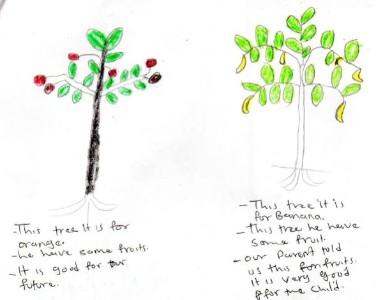 -This tree it is for
orange.
-he have some fruits.
-It is good for our
future.
- This tree it is
for Banana.
- This tree he have
some fruit.
- our Parent told
us this for fruits.
It is very good
for the child.